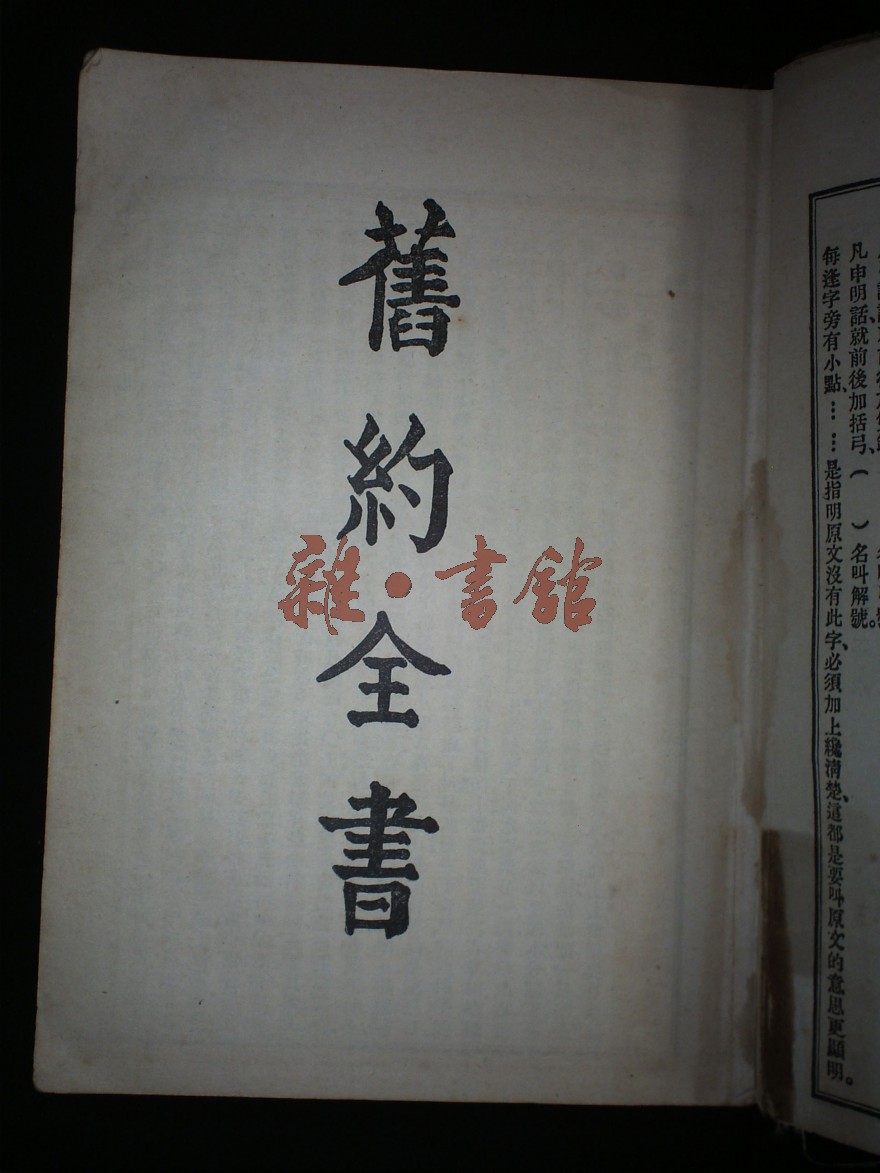 舊約全書
雜·書館
凡申明話、就前後加括弓、( )名叫解號。
每逢字旁有小點、……是指明原文沒有此字、必須加上纔清楚、這都是要叫原文的意思更顯明。